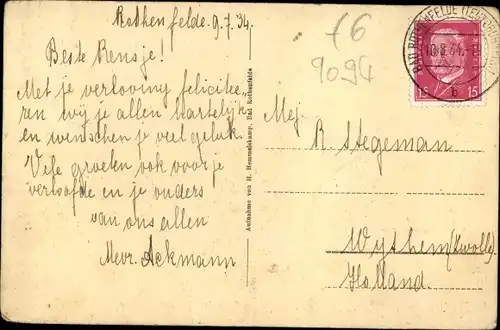 Rothenfelde. 9.7.34.
Beste Rensje!
Met je verloving felicite-
ren wij je allen hartelijk
en wenschen je veel geluk.
Vele groeten ook voor je
verloofde en je ouders
van ons allen
Mevr. Ackmann
Aufnahme von H. Hemmelskamp, Bad Rothenfelde
76
9094
BAD ROTHENFELDE (TEUTOBURGER
b
15 15
Mej.
R. Stegeman
Wythem (Zwolle)
Holland.